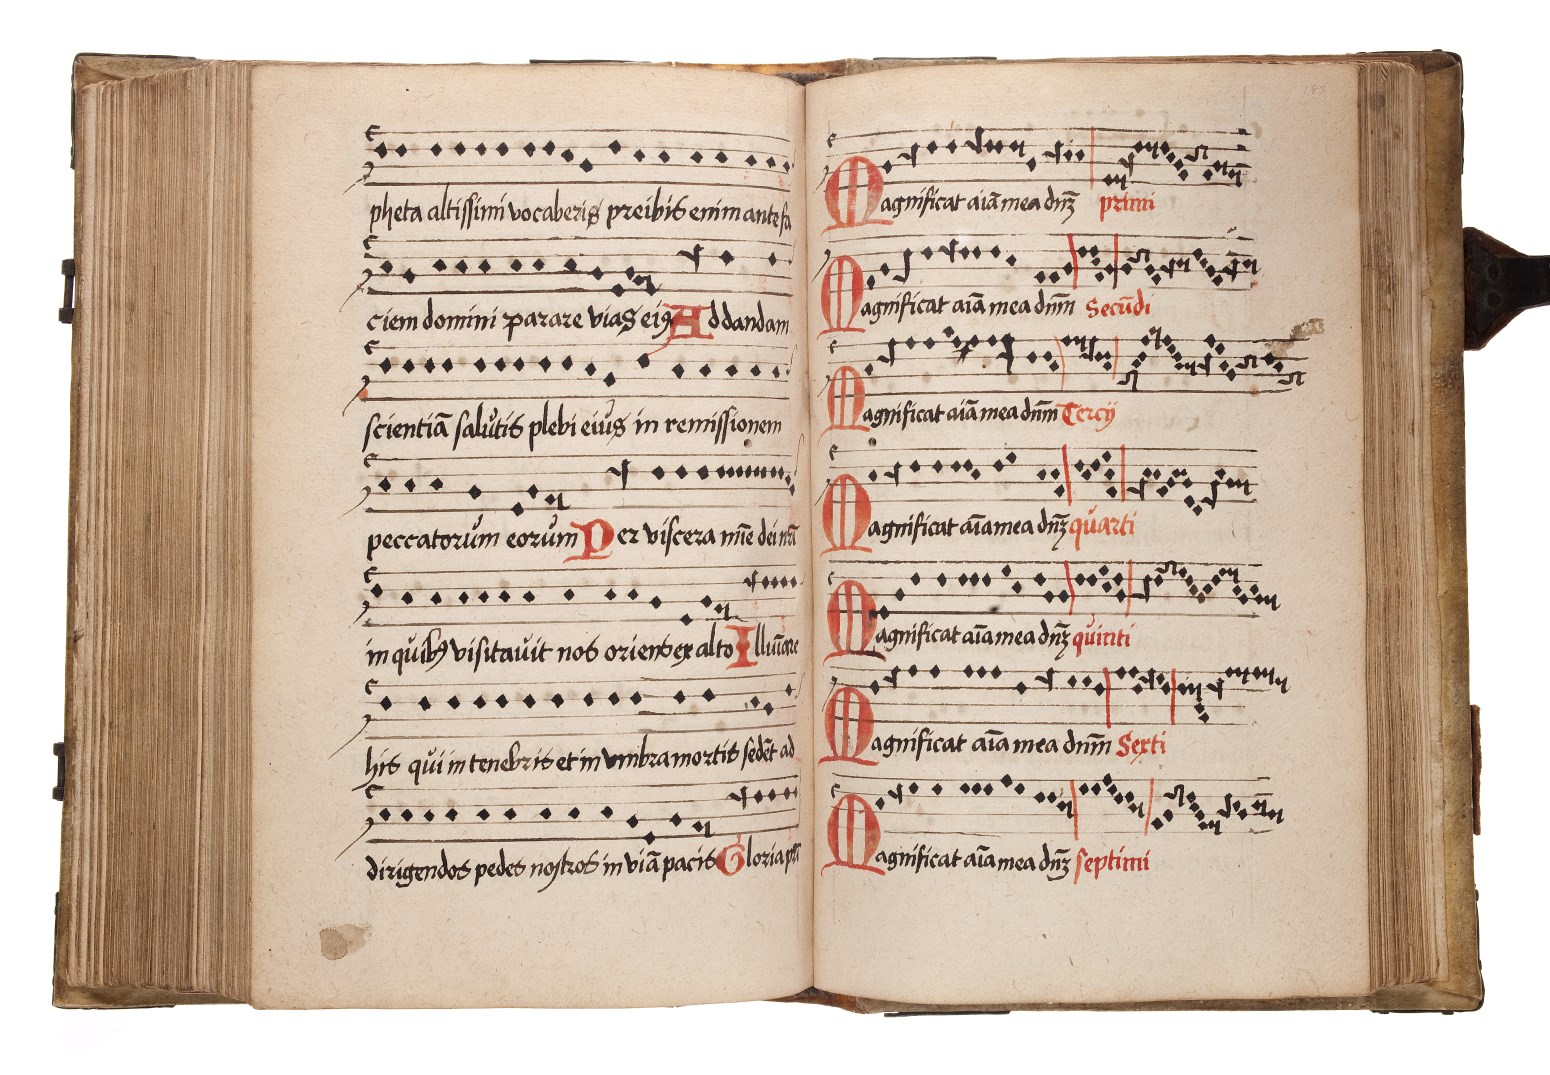 pheta altissimi vocaberis preibis enim ante fa
ciem domini parare vias eiꝰ Ad dandam
scientiā salutis plebi eius in remissionem
peccatorum eorum Per viscera mīe dei nrī
in quibꝰ visitavit nos oriens ex alto Illuīare
his qui in tenebris et in vmbra mortis sedēt ad
dirigendos pedes nostros in viā pacis Gloria pri
183
Magnificat aīā mea dnʒ primi
Magnificat aīā mea dnm̄ Secūdi
Magnificat aīā mea dnm̄ Tercij
Magnificat aīa mea dnʒ quarti
Magnificat aīa mea dnʒ quinti
Magnificat aīa mea dnm̄ Sexti
Magnificat aīa mea dnʒ septimi